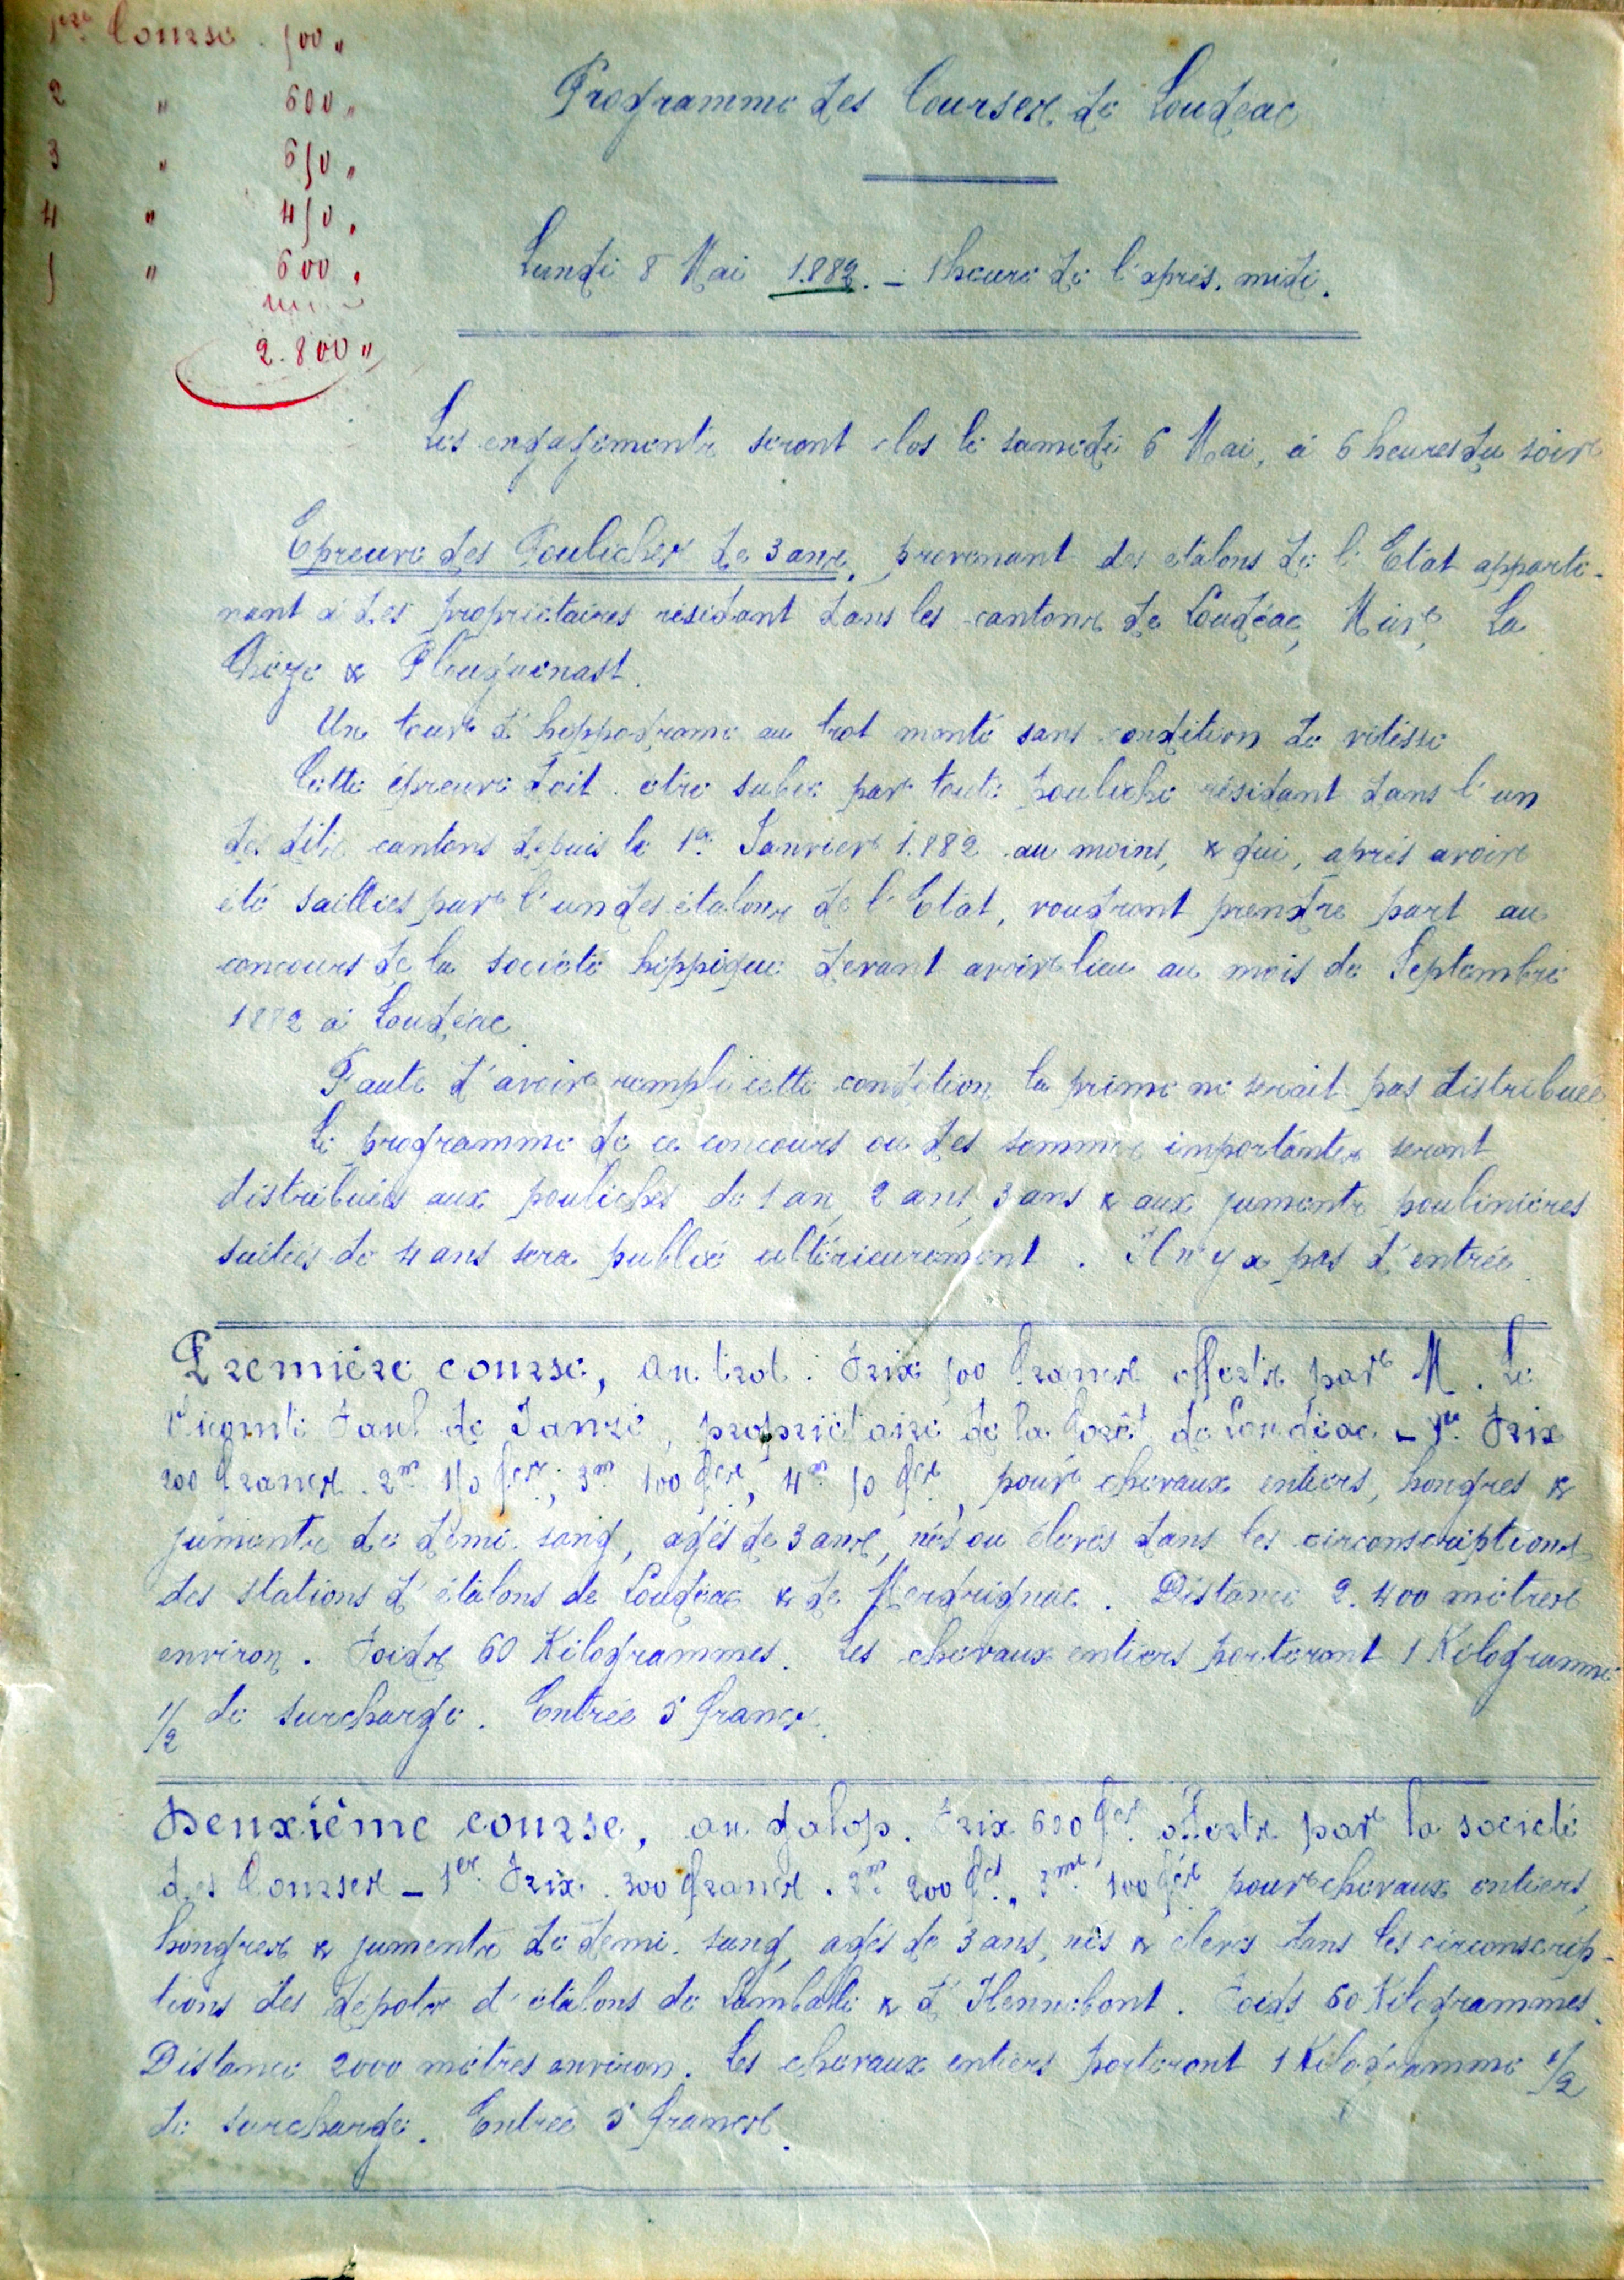 1ère Course 500 "
2 " 600 "
3 " 650 "
4 " 450 "
5 " 600 "
2.800 "
Programme des Courses de Loudéac
Lundi 8 Mai 1.882. – 1 heure de l'après-midi.
Les engagements seront clos le samedi 6 Mai, à 6 heures du soir
Epreuve des Pouliches de 3 ans, provenant des étalons de l'Etat apparte-
nant à des propriétaires résidant dans les cantons de Loudéac, Mûr, La
Chèze & Plouguenast.
Un tour d'hippodrome au trot monté sans condition de vitesse
Cette épreuve doit être subie par toute pouliche résidant dans l'un
des dits cantons depuis le 1er Janvier 1.882 au moins, & qui, après avoir
été saillies par l'un des étalons de l'Etat, voudront prendre part au
concours de la société hippique devant avoir lieu au mois de Septembre
1882 à Loudéac.
Faute d'avoir rempli cette condition la prime ne serait pas distribuée
Le programme de ce concours ou des sommes importantes seront
distribuées aux pouliches de 1 an, 2 ans, 3 ans & aux juments poulinières
suitées de 4 ans sera publié ultérieurement. Il n'y a pas d'entrée.
Première course, au trot. Prix 500 francs offerts par M. Le
Vicomte Paul de Janzé, propriétaire de la forêt de Loudéac – 1er Prix
200 francs. 2me 150 fcs, 3me 100 fcs, 4me 50 fcs, pour chevaux entiers, hongres &
juments de demi-sang, agés de 3 ans, nés ou élevés dans les circonscriptions
des stations d'étalons de Loudéac & de Merdrignac. Distance 2.400 mètres
environ. Poids 60 Kilogrammes. Les chevaux entiers porteront 1 Kilogramme
1/2 de surcharge. Entrée 5 francs.
Deuxième course, au galop. Prix 600 fcs offerts par la société
des Courses – 1er Prix. 300 francs. 2me 200 fcs, 3me 100 fcs pour chevaux entiers,
hongres & juments de demi-sang, agés de 3 ans, nés & élevés dans les circonscrip-
tions des dépots d'étalons de Lamballe & d'Hennebont. Poids 60 Kilogrammes.
Distance 2000 mètres environ. Les chevaux entiers porteront 1 Kilogramme 1/2
de surcharge. Entrée 5 francs.